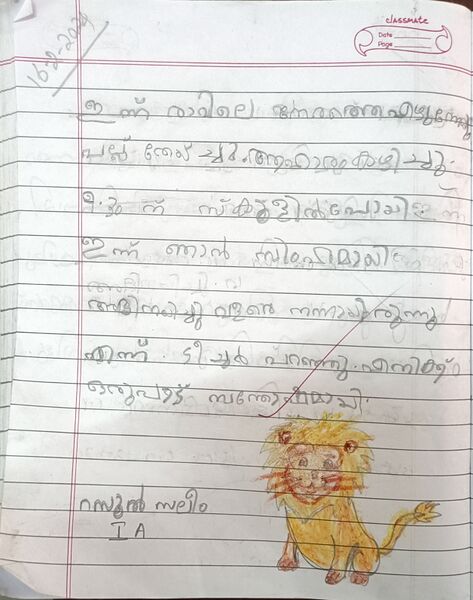 classmate
Date
Page
16-2-2024
ഇന്ന് രാവിലെ നേരത്തെ എഴുന്നേറ്റു
പല്ല് തേയ്ച്ചു. ആഹാരം കഴിച്ചു.
9.30 ന് സ്കൂളിൽ പോയി.
ഇന്ന് ഞാൻ സിംഹമായി
അഭിനയിച്ചു വളരെ നന്നായിരുന്നു
എന്ന് ടീച്ചർ പറഞ്ഞു. എനിക്ക്
ഒരുപാട് സന്തോഷമായി.
റസൂൽ സലീം
I A